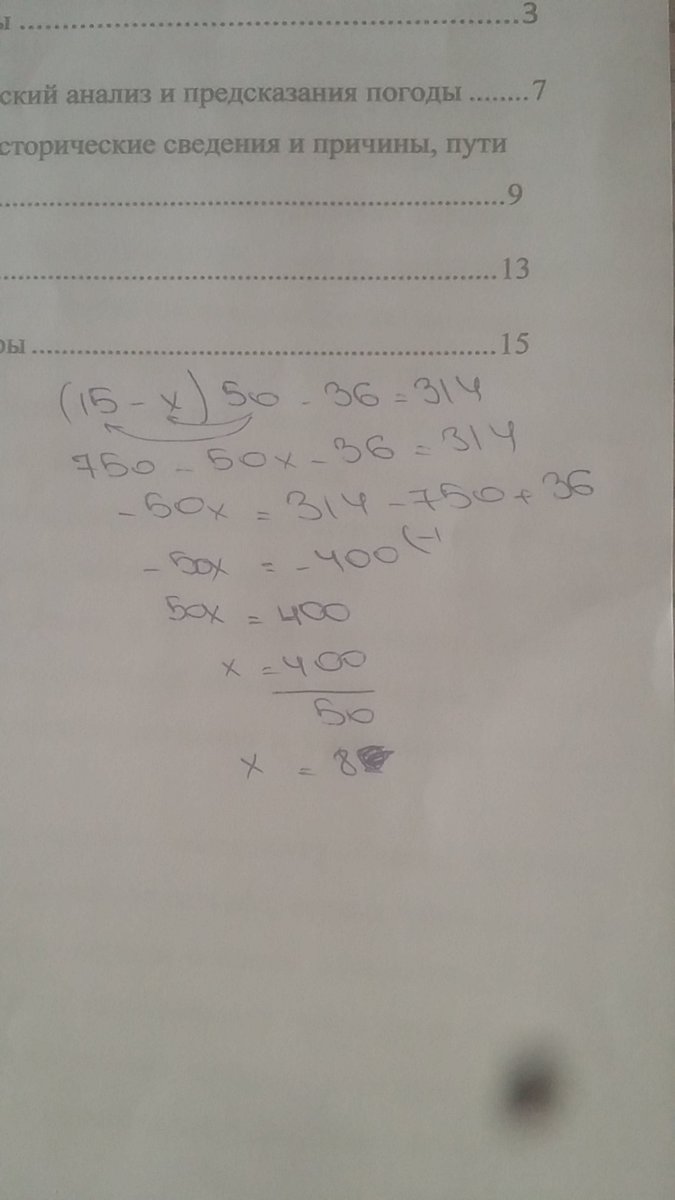 ы ........................................................3
ский анализ и предсказания погоды ........7
сторические сведения и причины, пути
........................................................9
........................................................13
ры ........................................................15
(15 - x) 50 - 36 = 314
750 - 50x - 36 = 314
- 50x = 314 - 750 + 36
- 50x = - 400 (-1
50x = 400
x = 400
50
x = 8